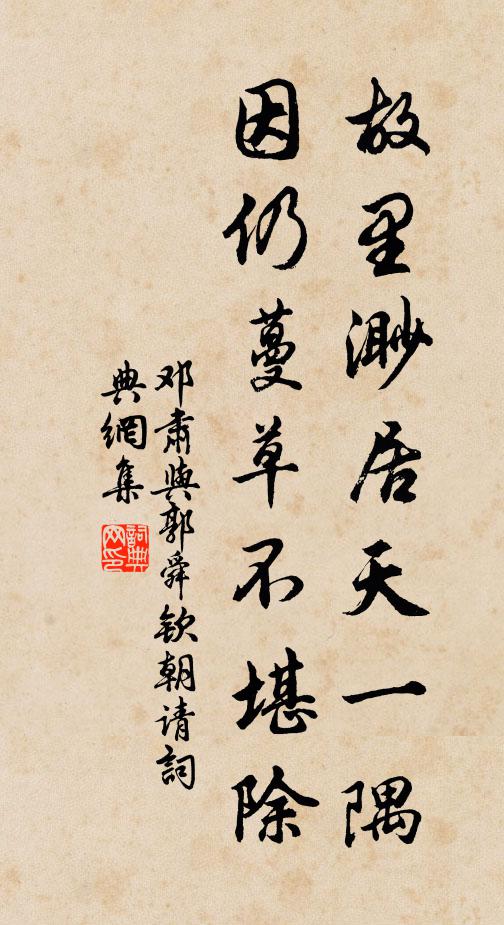 故里渺居天一隅
因仍蔓草不堪除
邓肃與郭舜钦朝请詞
典網集
詞典
网印